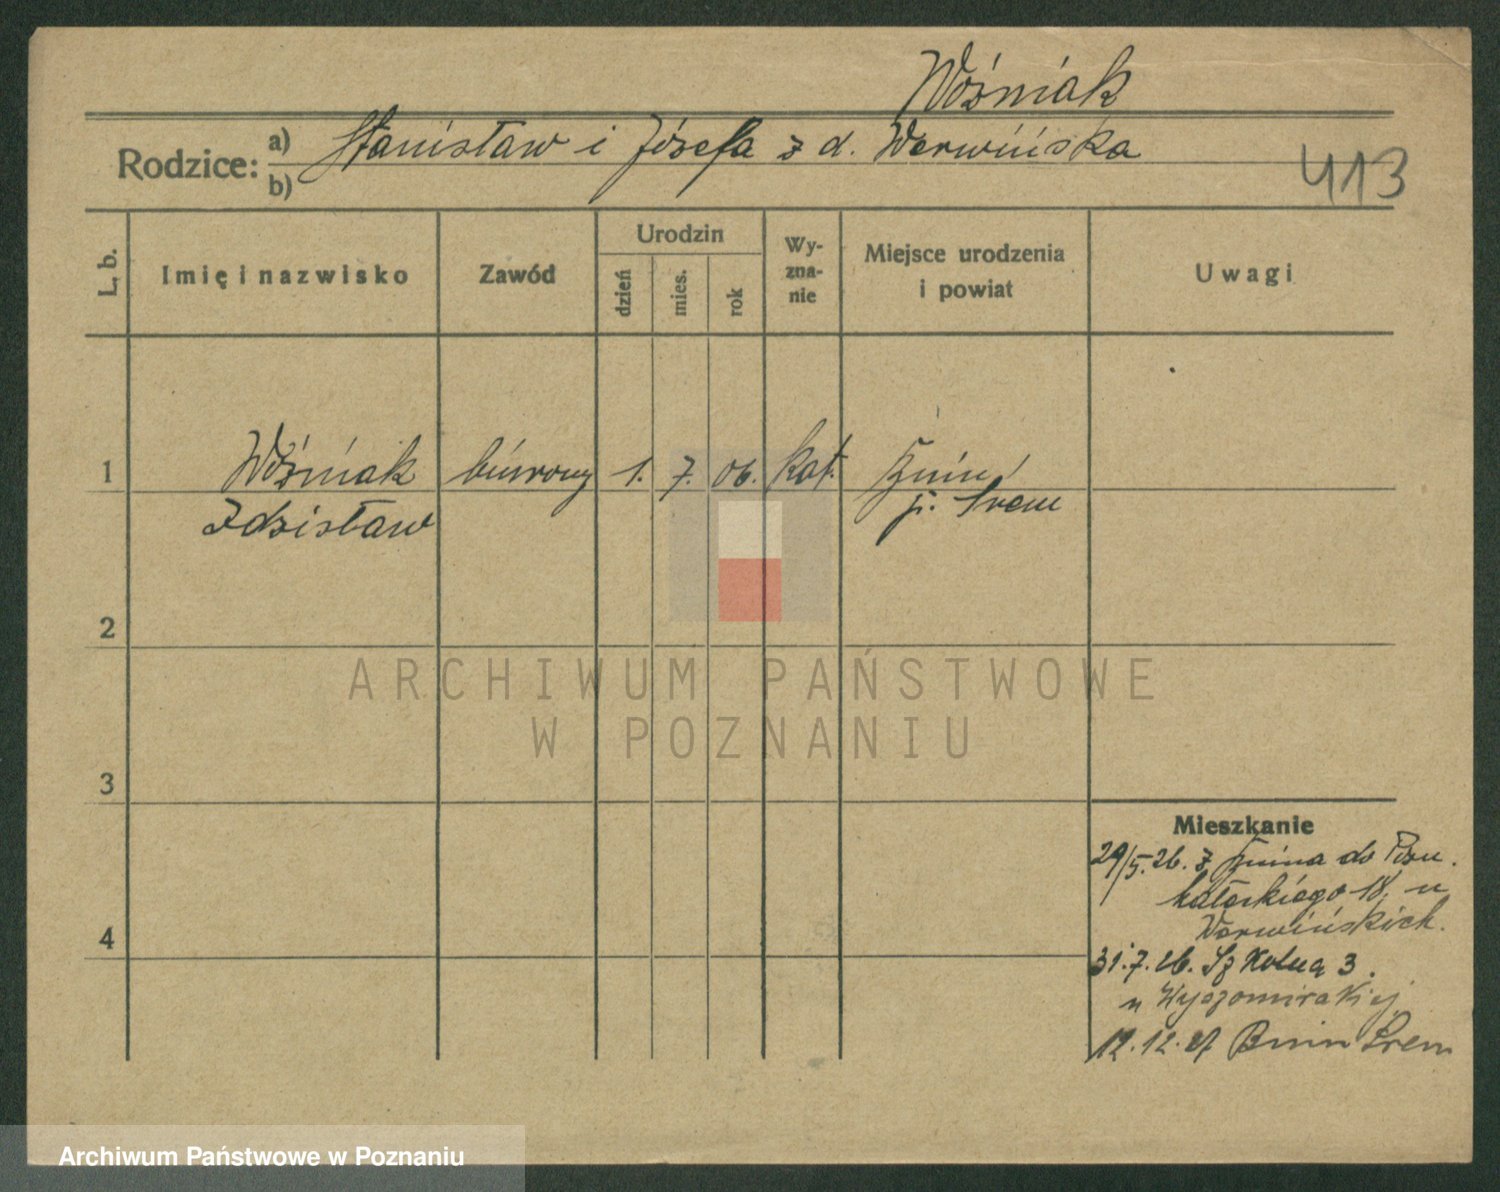 Woźniak
Rodzice: a) Stanisław i Józefa z d. Werwińska
b)
413
L. b.
Imię i nazwisko
Zawód
Urodzin
dzień
mies.
rok
Wy-
zna-
nie
Miejsce urodzenia
i powiat
Uwagi
1 Woźniak biurowy 1. 7. 06. kat. Bnin
Zdzisław p. Śrem
2
3
4
ARCHIWUM PAŃSTWOWE
W POZNANIU
Mieszkanie
29/5.26. z Bnina do Pozn.
18, u
Werwińskich.
31.7.26. Szkolna 3.
u Wyszomirskiej
12.12.27 Bnin Śrem
Archiwum Państwowe w Poznaniu